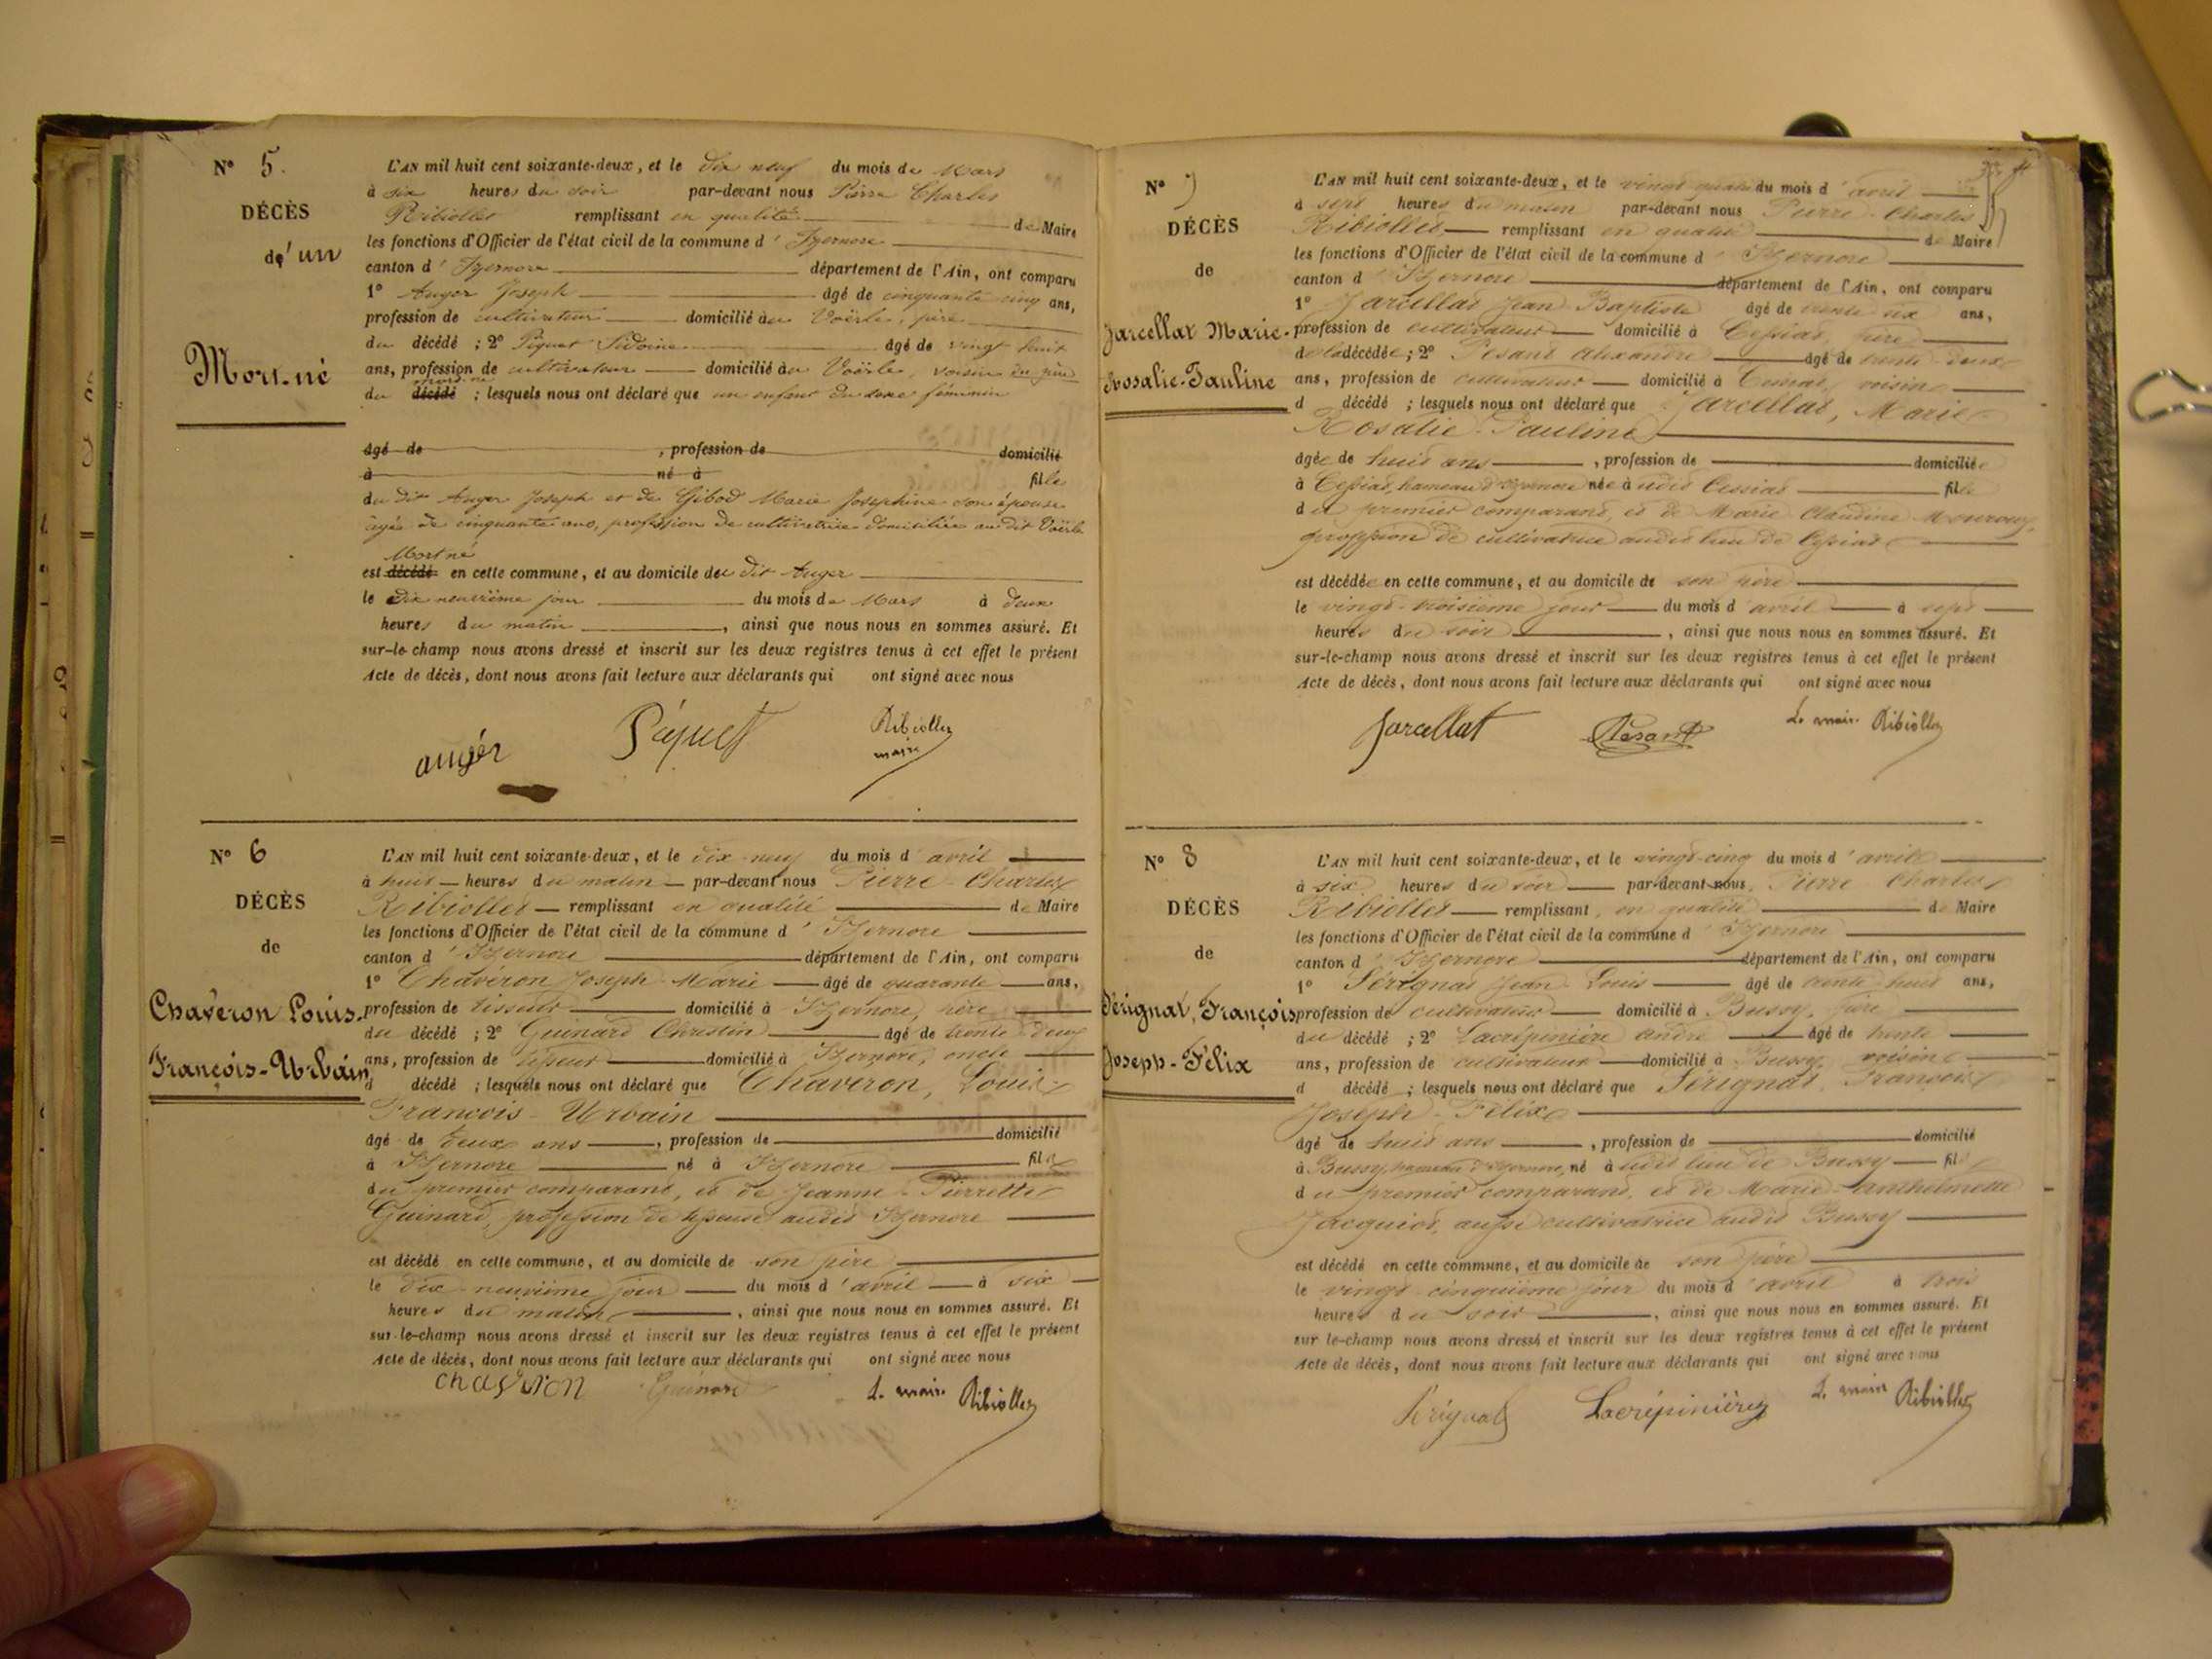 N° 5.
DÉCÈS
de' un
Mort-né
L'AN mil huit cent soixante-deux, et le dix neuf du mois de Mars
à six heures du soir par-devant nous Pierre Charles
Ribiollet remplissant en qualité de Maire
les fonctions d'Officier de l'état civil de la commune d' Izernore
canton d' Izernore département de l'Ain, ont comparu
1° Auger Joseph âgé de cinquante cinq ans,
profession de cultivateur domicilié au Voërle, père
du décédé ; 2° Piquet Sidoine âgé de vingt huit
ans, profession de cultivateur domicilié au Voërle, voisin du père
du décédé ; lesquels nous ont déclaré que un enfant du sexe féminin
âgé de , profession de domicilié
à né à fille
du dit Auger Joseph et de Gibod Marie Josephine son épouse
âgée de cinquante ans, profession de cultivatrice domiciliée au dit Voërle
Mort né
est décédé en cette commune, et au domicile du dit Auger
le dix neuvième jour du mois de Mars à deux
heures du matin , ainsi que nous nous en sommes assuré. Et
sur-le-champ nous avons dressé et inscrit sur les deux registres tenus à cet effet le présent
Acte de décès, dont nous avons fait lecture aux déclarants qui ont signé avec nous
augér Péquet Ribiollet
maire
N° 6
DÉCÈS
de
Chavéron Louis-
François-Urbain
L'AN mil huit cent soixante-deux, et le dix-neuf du mois d'avril
à huit heures du matin par-devant nous Pierre-Charles
Ribiollet remplissant en qualité de Maire
les fonctions d'Officier de l'état civil de la commune d' Izernore
canton d' Izernore département de l'Ain, ont comparu
1° Chavéron Joseph-Marie âgé de quarante ans,
profession de tisseur domicilié à Izernore, père
du décédé ; 2° Guinard Christin âgé de trente deux
ans, profession de tisseur domicilié à Izernore, oncle
d décédé ; lesquels nous ont déclaré que Chaveron, Louis-
François-Urbain
âgé de deux ans , profession de domicilié
à Izernore né à Izernore fils
du premier comparant, et de Jeanne-Pierrette
Guinard, profession de tisseuse audit Izernore
est décédé en cette commune, et au domicile de son père
le dix-neuvième jour du mois d'avril à six
heures du matin , ainsi que nous nous en sommes assuré. Et
sur-le-champ nous avons dressé et inscrit sur les deux registres tenus à cet effet le présent
Acte de décès, dont nous avons fait lecture aux déclarants qui ont signé avec nous
chavéron Guinard L. maire Ribiollet
N° 7
DÉCÈS
de
Jarcellat Marie-
Rosalie-Pauline
L'AN mil huit cent soixante-deux, et le vingt quatre du mois d'avril
à sept heures du matin par-devant nous Pierre-Charles
Ribiollet remplissant en qualité de Maire
les fonctions d'Officier de l'état civil de la commune d' Izernore
canton d' Izernore département de l'Ain, ont comparu
1° Jarcellat Jean-Baptiste âgé de trente six ans,
profession de cultivateur domicilié à Cessiat, père
de la décédée ; 2° Pesant Alexandre âgé de trente-deux
ans, profession de cultivateur domicilié à Cessiat, voisin
d décédé ; lesquels nous ont déclaré que Jarcellat, Marie
Rosalie-Pauline
âgée de huit ans , profession de domiciliée
à Cessiat, hameau d'Izernore née à udit Cessiat fille
du premier comparant, et de Marie Claudine
profession de cultivatrice audit lieu de Cessiat
est décédée en cette commune, et au domicile de son père
le vingt-troisième jour du mois d'avril à sept
heures du soir , ainsi que nous nous en sommes assuré. Et
sur-le-champ nous avons dressé et inscrit sur les deux registres tenus à cet effet le présent
Acte de décès, dont nous avons fait lecture aux déclarants qui ont signé avec nous
Jarcellat Pesant L. maire Ribiollet
N° 8
DÉCÈS
de
Sérignat, François
Joseph-Félix
L'AN mil huit cent soixante-deux, et le vingt-cinq du mois d'avril
à six heures du soir par-devant nous Pierre Charles
Ribiollet remplissant en qualité de Maire
les fonctions d'Officier de l'état civil de la commune d' Izernore
canton d' Izernore département de l'Ain, ont comparu
1° Sérignat Jean-Louis âgé de trente huit ans,
profession de cultivateur domicilié à Bussy, père
du décédé ; 2° Lacrépinière André âgé de trente
ans, profession de cultivateur domicilié à Bussy, voisin
d décédé ; lesquels nous ont déclaré que Sérignat, François
Joseph-Félix
âgé de huit ans , profession de domicilié
à Bussy, hameau d'Izernore, né à udit lieu de Bussy fils
du premier comparant, et de Marie-Anthelmette
Jacquiot, aussi cultivatrice audit Bussy
est décédé en cette commune, et au domicile de son père
le vingt-cinquième jour du mois d'avril à trois
heures du soir , ainsi que nous nous en sommes assuré. Et
sur le-champ nous avons dressé et inscrit sur les deux registres tenus à cet effet le présent
Acte de décès, dont nous avons fait lecture aux déclarants qui ont signé avec nous
Sérignat Lacrépinière L. maire Ribiollet